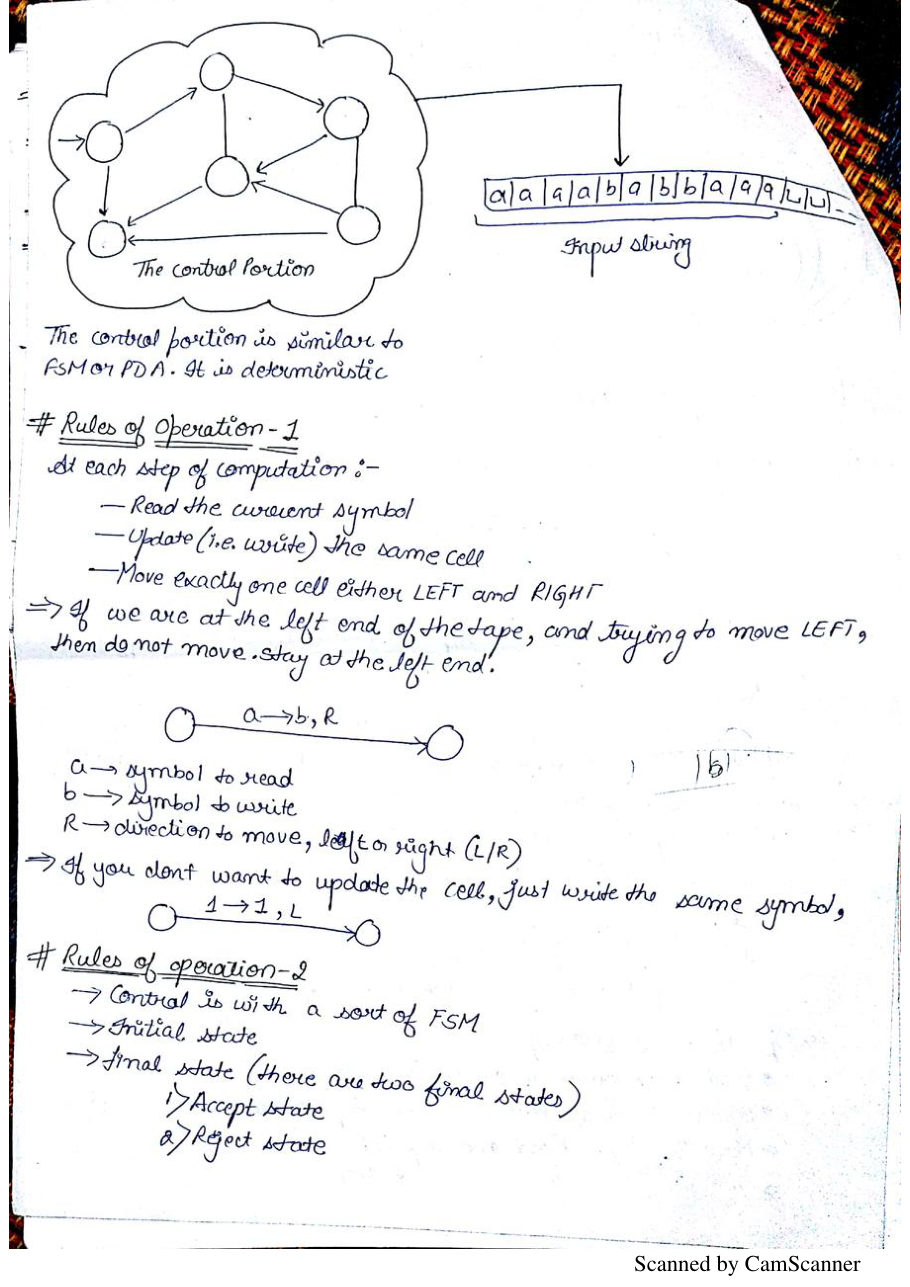 a|a|a|a|b|a|b|b|a|a|a|⊔|⊔|--
Input string
The control Portion
The control portion is similar to
FSM or PDA. It is deterministic
# Rules of Operation - 1
At each step of computation :-
— Read the current symbol
— Update (i.e. write) the same cell
— Move exactly one cell either LEFT and RIGHT
⇒ If we are at the left end of the tape, and trying to move LEFT,
then do not move. Stay at the left end.
a→b, R
a → symbol to read
|b|
b → symbol to write
R → direction to move, left or right (L/R)
⇒ If you dont want to update the cell, just write the same symbol,
1→1, L
# Rules of operation-2
→ Control is with a sort of FSM
→ Initial state
→ final state (there are two final states)
1) Accept state
2) Reject state
Scanned by CamScanner